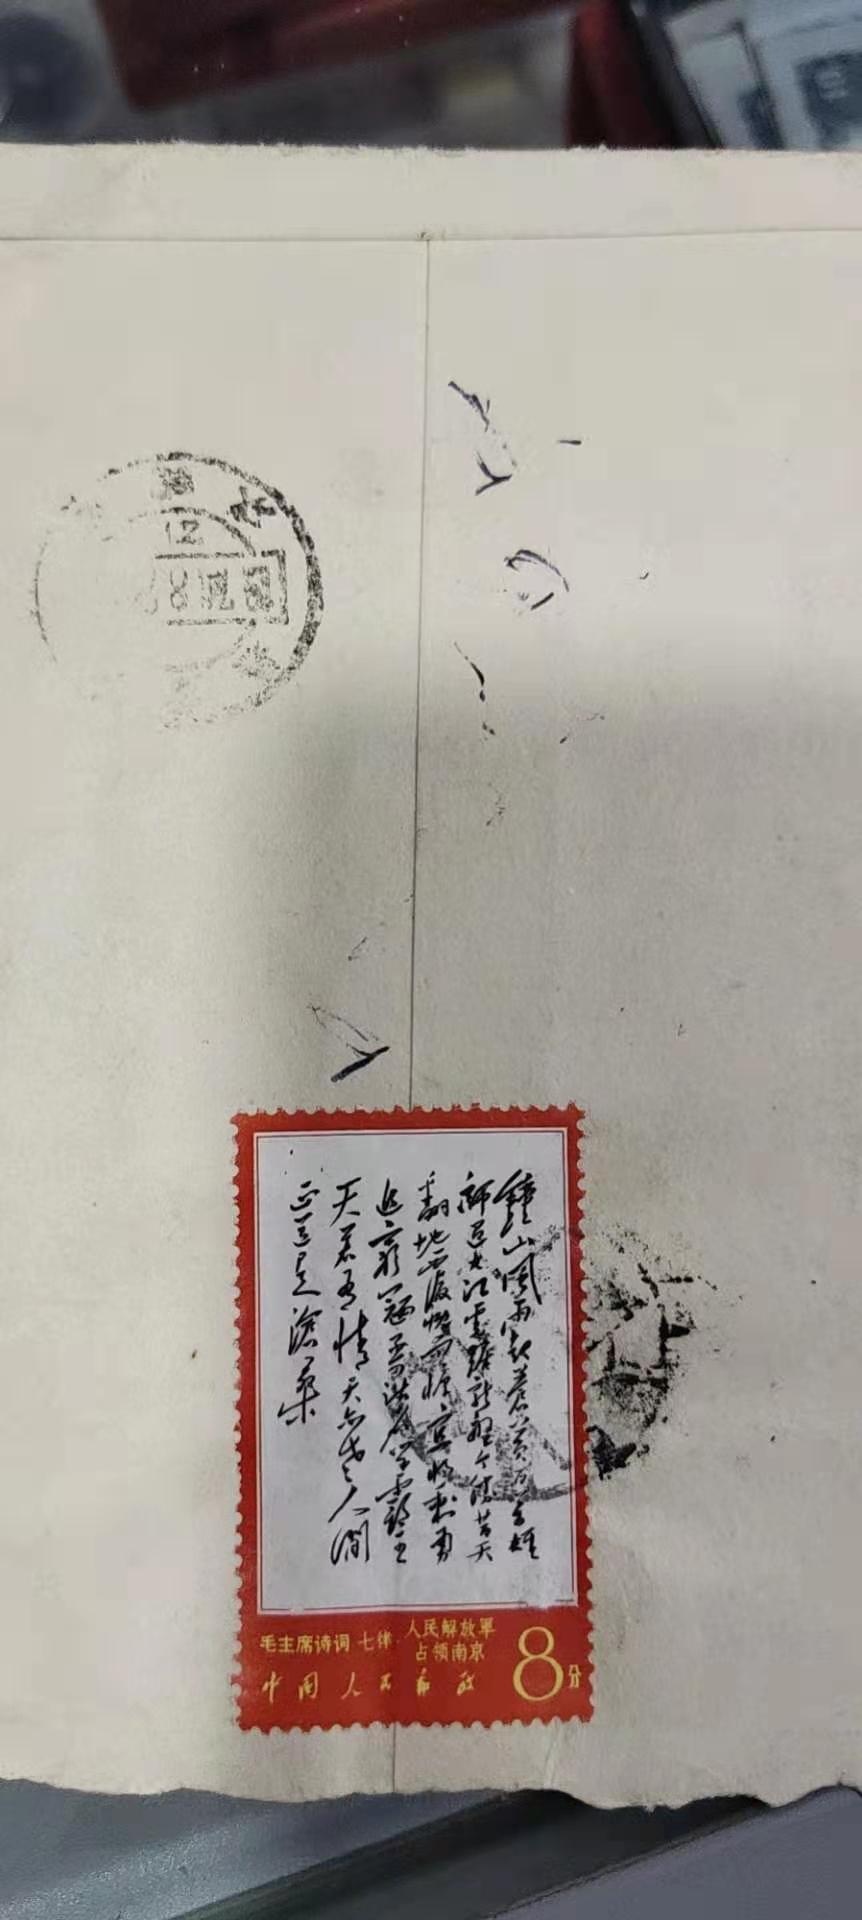 鐘山風雨起蒼黃百万雄
師過大江虎踞龍盤今勝昔天
翻地覆慨而慷宜將剩勇
追窮寇不可沽名学霸王
天若有情天亦老人間
正道是滄桑
毛主席诗词 七律 人民解放军
占领南京
中国人民邮政
8分